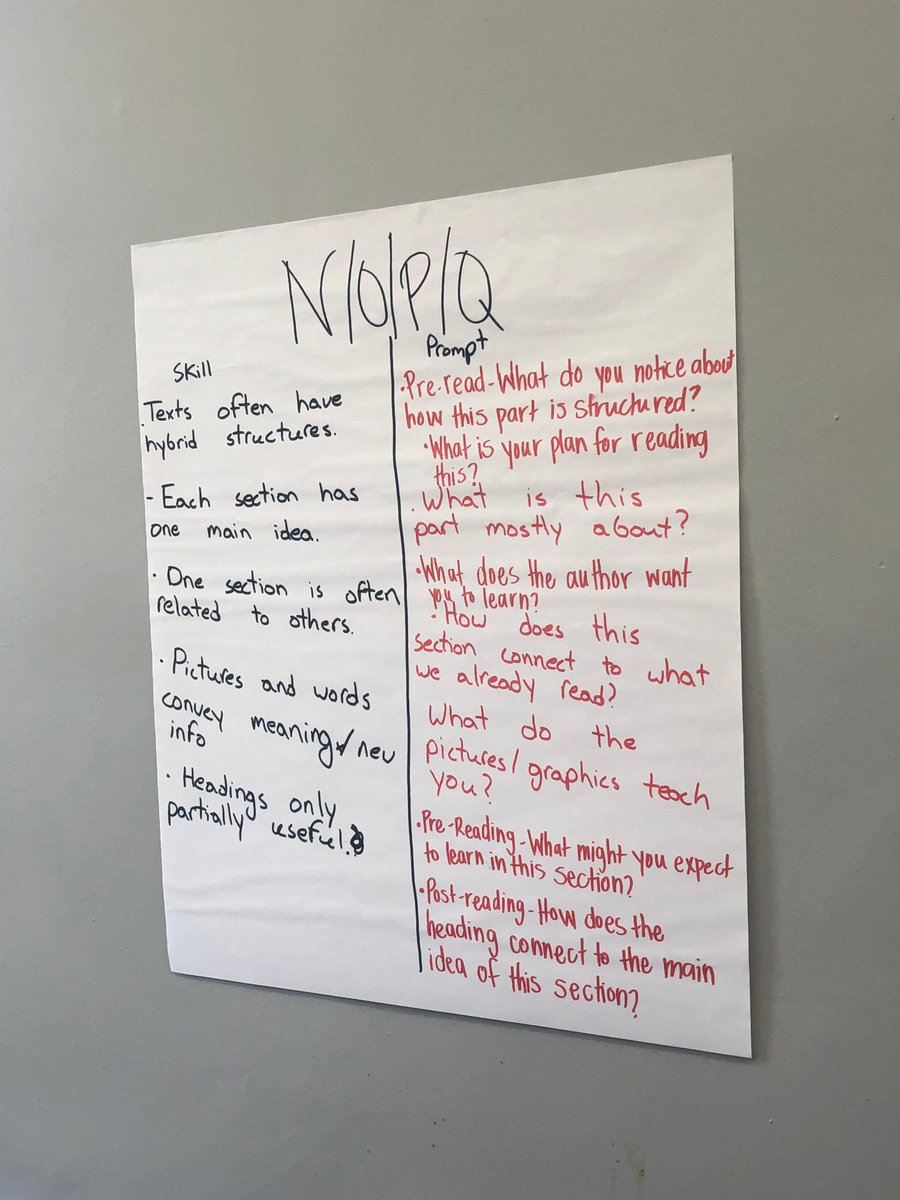 N/O/P/Q
Skill
.Texts often have
hybrid structures.
- Each section has
one main idea.
· One section is often
related to others.
· Pictures and words
convey meaning / new
info
· Headings only
partially useful.
Prompt
·Pre-read-What do you notice about
how this part is structured?
·What is your plan for reading
this?
.What is this
part mostly about?
·What does the author want
you to learn?
·How does this
section connect to what
we already read?
What do the
pictures/graphics teach
you?
·Pre-Reading-What might you expect
to learn in this section?
·Post-reading-How does the
heading connect to the main
idea of this section?